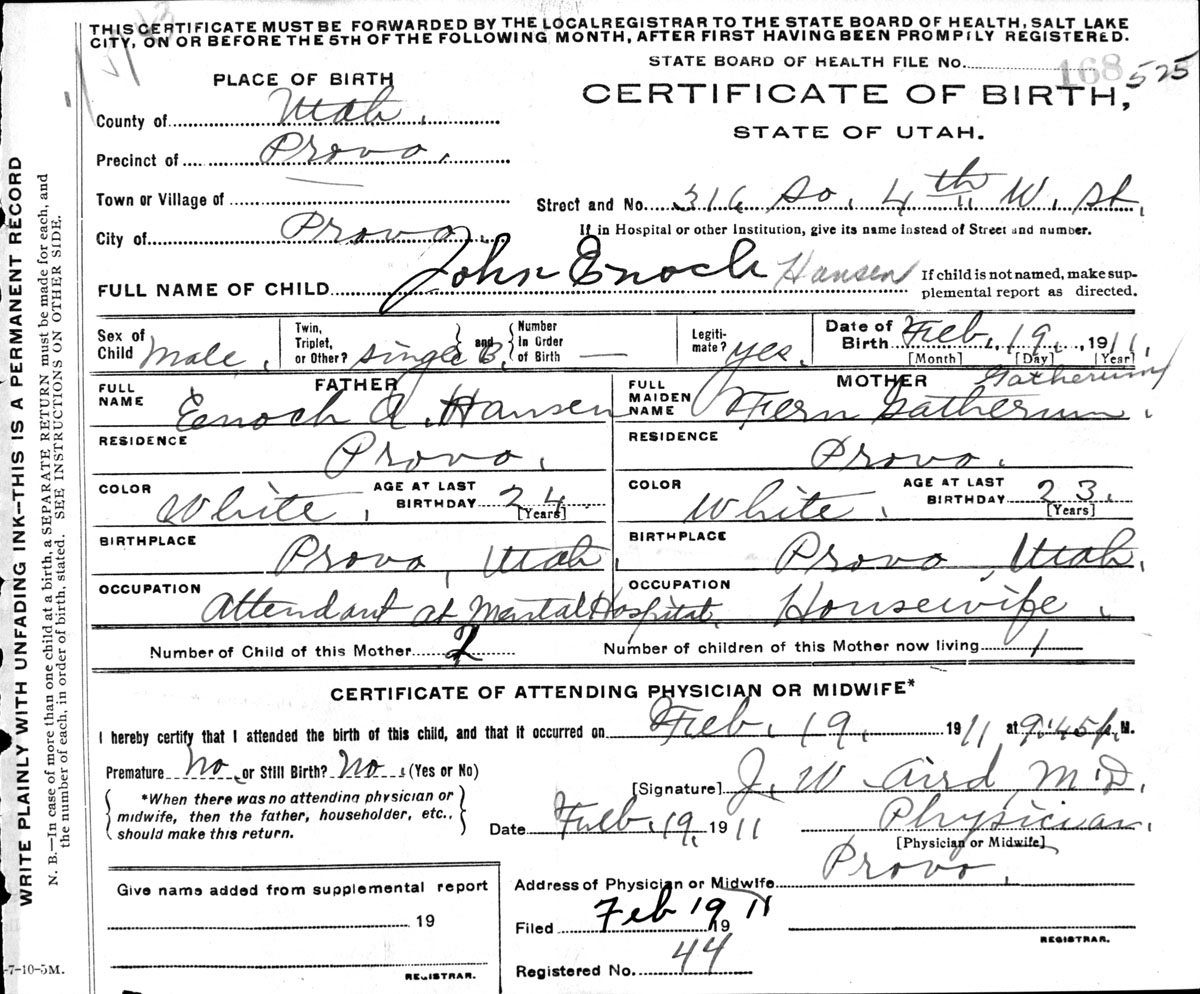 THIS CERTIFICATE MUST BE FORWARDED BY THE LOCAL REGISTRAR TO THE STATE BOARD OF HEALTH, SALT LAKE
CITY, ON OR BEFORE THE 5TH OF THE FOLLOWING MONTH, AFTER FIRST HAVING BEEN PROMPTLY REGISTERED.
STATE BOARD OF HEALTH FILE No. 168 525
PLACE OF BIRTH
CERTIFICATE OF BIRTH,
STATE OF UTAH.
County of Utah.
Precinct of Provo.
Town or Village of
Street and No. 316 So. 4th W. St.
City of Provo.
If in Hospital or other Institution, give its name instead of Street and number.
FULL NAME OF CHILD John Enoch Hansen
If child is not named, make sup-
plemental report as directed.
Sex of Child Male.
Twin, Triplet, or Other? Single B. and Number in Order of Birth —
Legiti-mate? Yes.
Date of Birth Feb. 19, 1911.
[Month] [Day] [Year]
FATHER
MOTHER Gatherum
FULL NAME Enoch A. Hansen
FULL MAIDEN NAME Fern Gatherum.
RESIDENCE Provo.
RESIDENCE Provo.
COLOR White. AGE AT LAST BIRTHDAY 24 [Years]
COLOR White. AGE AT LAST BIRTHDAY 23. [Years]
BIRTHPLACE Provo, Utah.
BIRTHPLACE Provo, Utah.
OCCUPATION Attendant at Mental Hospital.
OCCUPATION Housewife.
Number of Child of this Mother 2
Number of children of this Mother now living 1
CERTIFICATE OF ATTENDING PHYSICIAN OR MIDWIFE*
I hereby certify that I attended the birth of this child, and that it occurred on Feb. 19, 1911 at 9:45 p. M.
Premature No, or Still Birth? No. (Yes or No)
*When there was no attending physician or
midwife, then the father, householder, etc.,
should make this return.
[Signature] J. W Aird M.D.
Date Feb. 19, 1911
Physician.
[Physician or Midwife]
Address of Physician or Midwife Provo.
Give name added from supplemental report
19
REGISTRAR.
Filed Feb 19 1911
REGISTRAR.
Registered No. 44
-7-10-5M.
WRITE PLAINLY WITH UNFADING INK—THIS IS A PERMANENT RECORD
N. B.—In case of more than one child at a birth, a SEPARATE RETURN must be made for each, and
the number of each, in order of birth, stated. SEE INSTRUCTIONS ON OTHER SIDE.